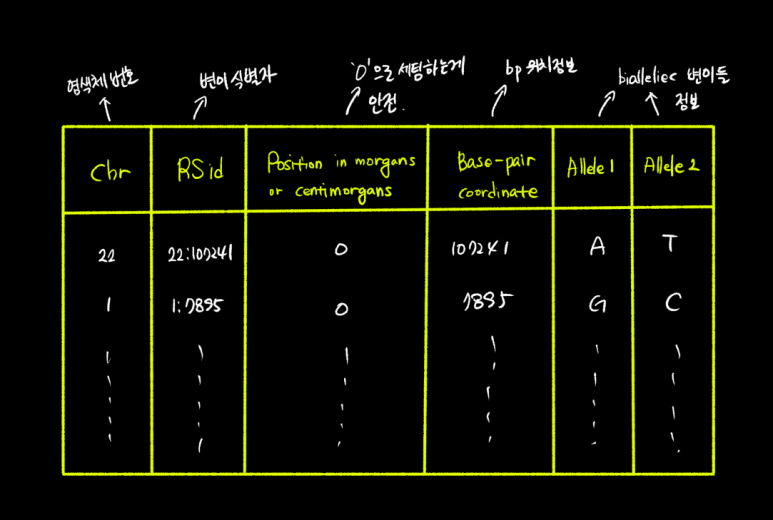 염색체 번호
변이 식별자
'0'으로 세팅하는게
안전.
bp 위치정보
biallelic 변이들
정보
Chr
RSid
Position in morgans
or centimorgans
Base-pair
coordinate
Allele 1
Allele 2
22 22:107241 0 107241 A T
1 1:7895 0 7895 G C